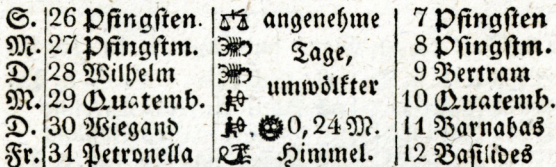 S. 26 Pfingsten. angenehme 7 Pfingsten
M. 27 Pfingstm. Tage, 8 Pfingstm.
D. 28 Wilhelm umwölkter 9 Bertram
M. 29 Quatemb. 10 Quatemb.
D. 30 Wiegand 0,24 M. 11 Barnabas
Fr. 31 Petronella Himmel. 12 Basilides